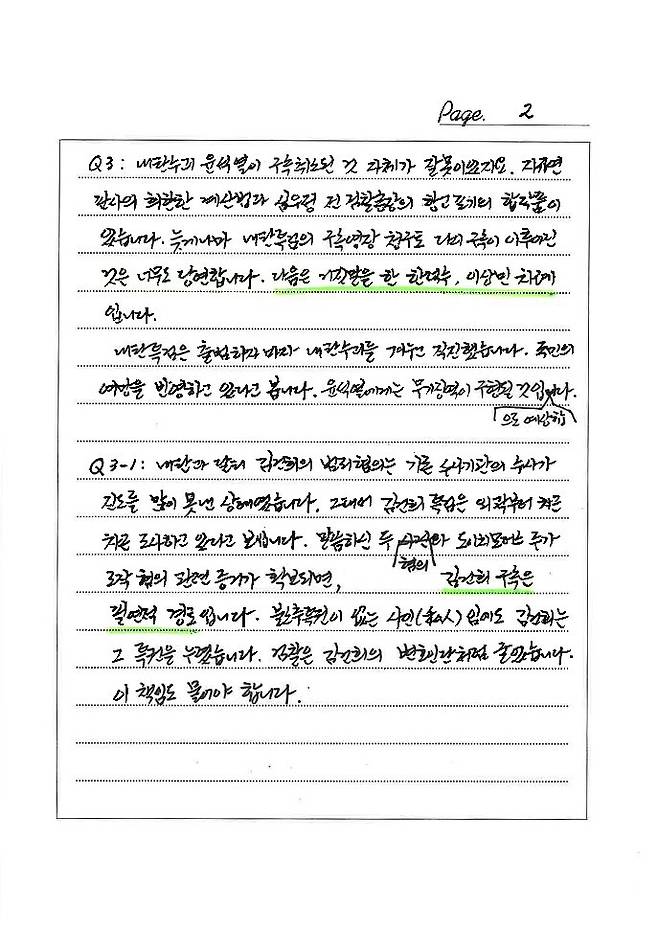 Page. 2
Q3 : 내란수괴 윤석열이 구속취소된 것 자체가 잘못이었지요. 지귀연
판사의 희한한 계산법과 심우정 전 검찰총장의 항고 포기의 합작품이
었습니다. 늦게나마 내란특검의 구속영장 청구로 다시 구속이 이루어진
것은 너무도 당연합니다. 다음은 거짓말을 한 한덕수, 이상민 차례
입니다.
내란특검은 출범하자 마자 내란수괴를 겨누고 직진했습니다. 국민의
여망을 반영하고 있다고 봅니다. 윤석열에게는 무기징역이 구형될 것입니다.
으로 예상합
Q3-1 : 내란과 달리 김건희의 범죄혐의는 기존 수사기관의 수사가
진도를 많이 못낸 상태였습니다. 그래서 김건희 특검은 외곽부터 차근
차근 조사하고 있다고 보입니다. 말씀하신 두 와 도이치모터스 주가
혐의
조작 혐의 관련 증거가 확보되면, 김건희 구속은
필연적 경로입니다. 불소추특권이 없는 사인(私人)임에도 김건희는
그 특권을 누렸습니다. 검찰은 김건희의 변호인단처럼 굴었습니다.
이 책임도 물어야 합니다.